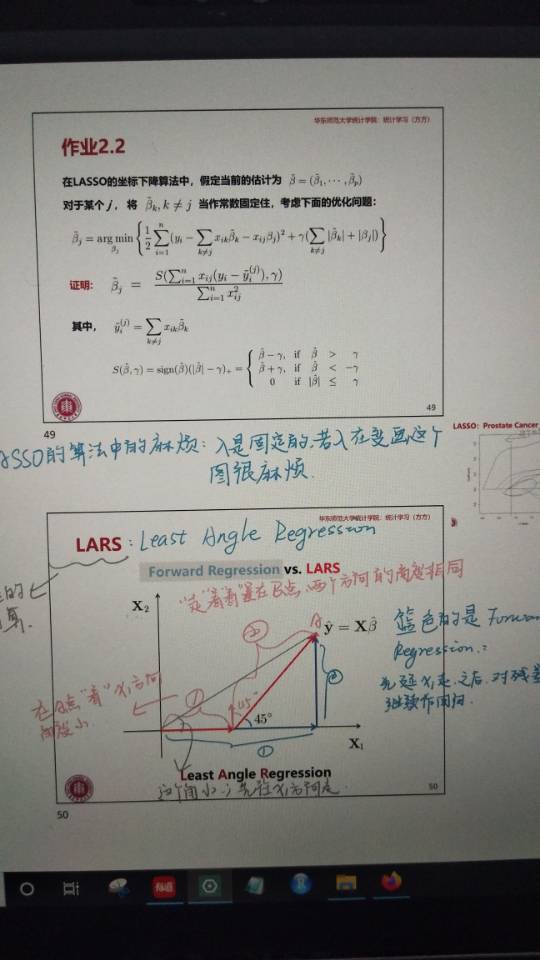 华东师范大学统计学院:统计学习(方方)
作业2.2
在LASSO的坐标下降算法中,假定当前的估计为 β̃ = (β̃₁, ⋯, β̃ₚ)
对于某个 j, 将 β̃ₖ, k ≠ j 当作常数固定住,考虑下面的优化问题:
β̃ⱼ = arg min_{βⱼ} { 1/2 ∑_{i=1}^{n} (yᵢ − ∑_{k≠j} xᵢₖβ̃ₖ − xᵢⱼβⱼ)² + γ(∑_{k≠j} |β̃ₖ| + |βⱼ|) }
证明: β̃ⱼ = S(∑_{i=1}^{n} xᵢⱼ(yᵢ − ỹᵢ^{(j)}), γ) / ∑_{i=1}^{n} xᵢⱼ²
其中, ỹᵢ^{(j)} = ∑_{k≠j} xᵢₖβ̃ₖ
S(β̂, γ) = sign(β̂)(|β̂| − γ)₊ = { β̂ − γ, if β̂ > γ
β̂ + γ, if β̂ < −γ
0 if |β̂| ≤ γ
49
49
LASSO: Prostate Cancer
ASSO的算法中的麻烦:λ是固定的,若λ在变画这个
图很麻烦.
华东师范大学统计学院:统计学习(方方)
LARS:Least Angle Regression
Forward Regression vs. LARS
"走"着"看"着在B点,两个方向的角度相同
X₂
A
ŷ = Xβ̂
②
①
45°
45°
②
①
X₁
篮色的是Forwar
Regression.:
先延X₁走,之后,对残差
继续作回归.
"看"X₁方向
Least Angle Regression
50
50